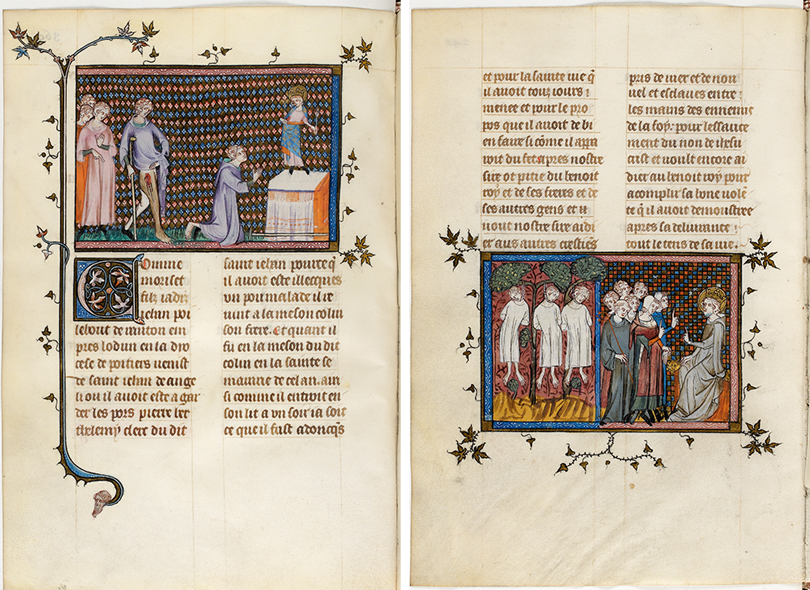 Comme
moriset
filz iadis
iehan poi
lebout de ranton em
pres lodun en la dyo
cese de poitiers venist
de saint iehan de ange
li ou il auoit este a gar
der les pors pierre ber
thelemy clerc du dit
saint iehan pource q̃
il auoit este illecques
vn pou malade il re
uint a la meson colin
son frere. Et quant il
fu en la meson du dit
colin en la sainte se
maine de cel an. ain
si comme il entroit en
son lit a vn soir ia soit
ce que il fust adoncq̃s
et pour la sainte vie q̃
il auoit touz iours
menee et pour le pro
pos que il auoit de bi
en faire si cõme il appa
roit du fet apres nostre
sire ot pitie du benoit
roy et de ses freres et de
ses autres gens et
nostre sire aidi
er aus autres crestiẽs
pris de et de nou
uel et esclaues entre
les mains des ennemis
de la foy. pour lessauce
ment du non de ihesu
crist et voult encore ai
dier au benoit roy pour
acomplir sa bone volẽ
te q̃ il auoit demonstree
apres sa deliurance
tout le tens de sa vie.